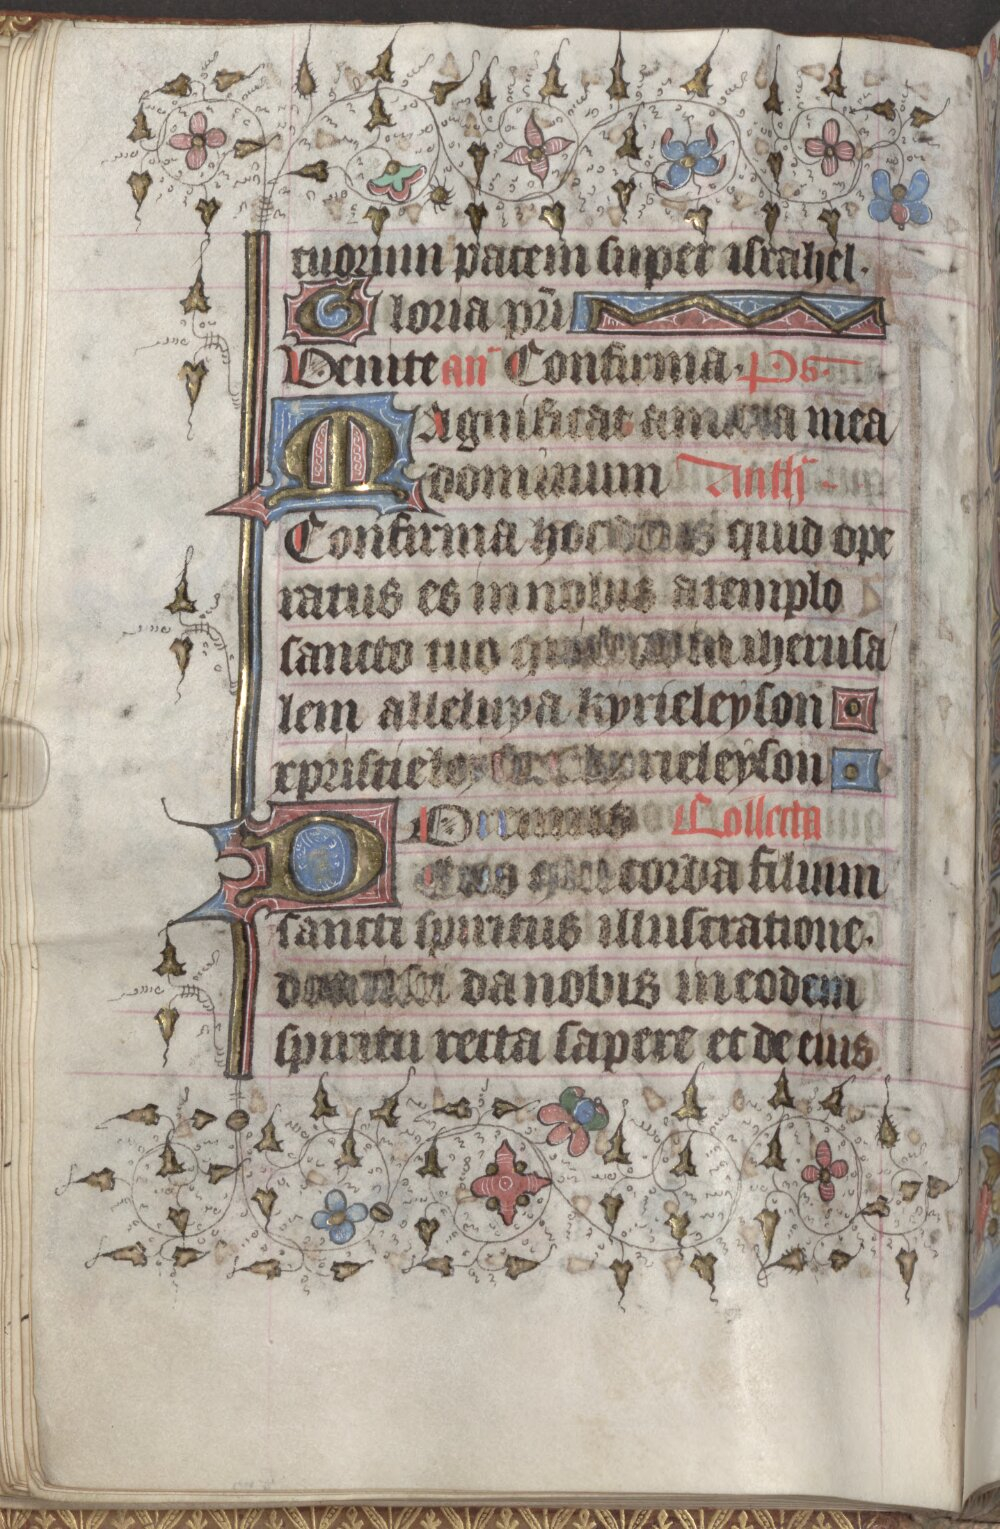 tuorum pacem super israhel.
Gloria pri
Venite an Confirma. Ps.
Magnificat anima mea
dominum Anth
Confirma hoc deus quid ope
ratus es in nobis a templo
sancto tuo quod est in iherusa
lem alleluya kyrieleyson
xpristieleyson kyrieleyson
Collecta
Deus qui corda filium
sancti spiritus illustratione.
docuisti da nobis in eodem
spiritu recta sapere et de eius